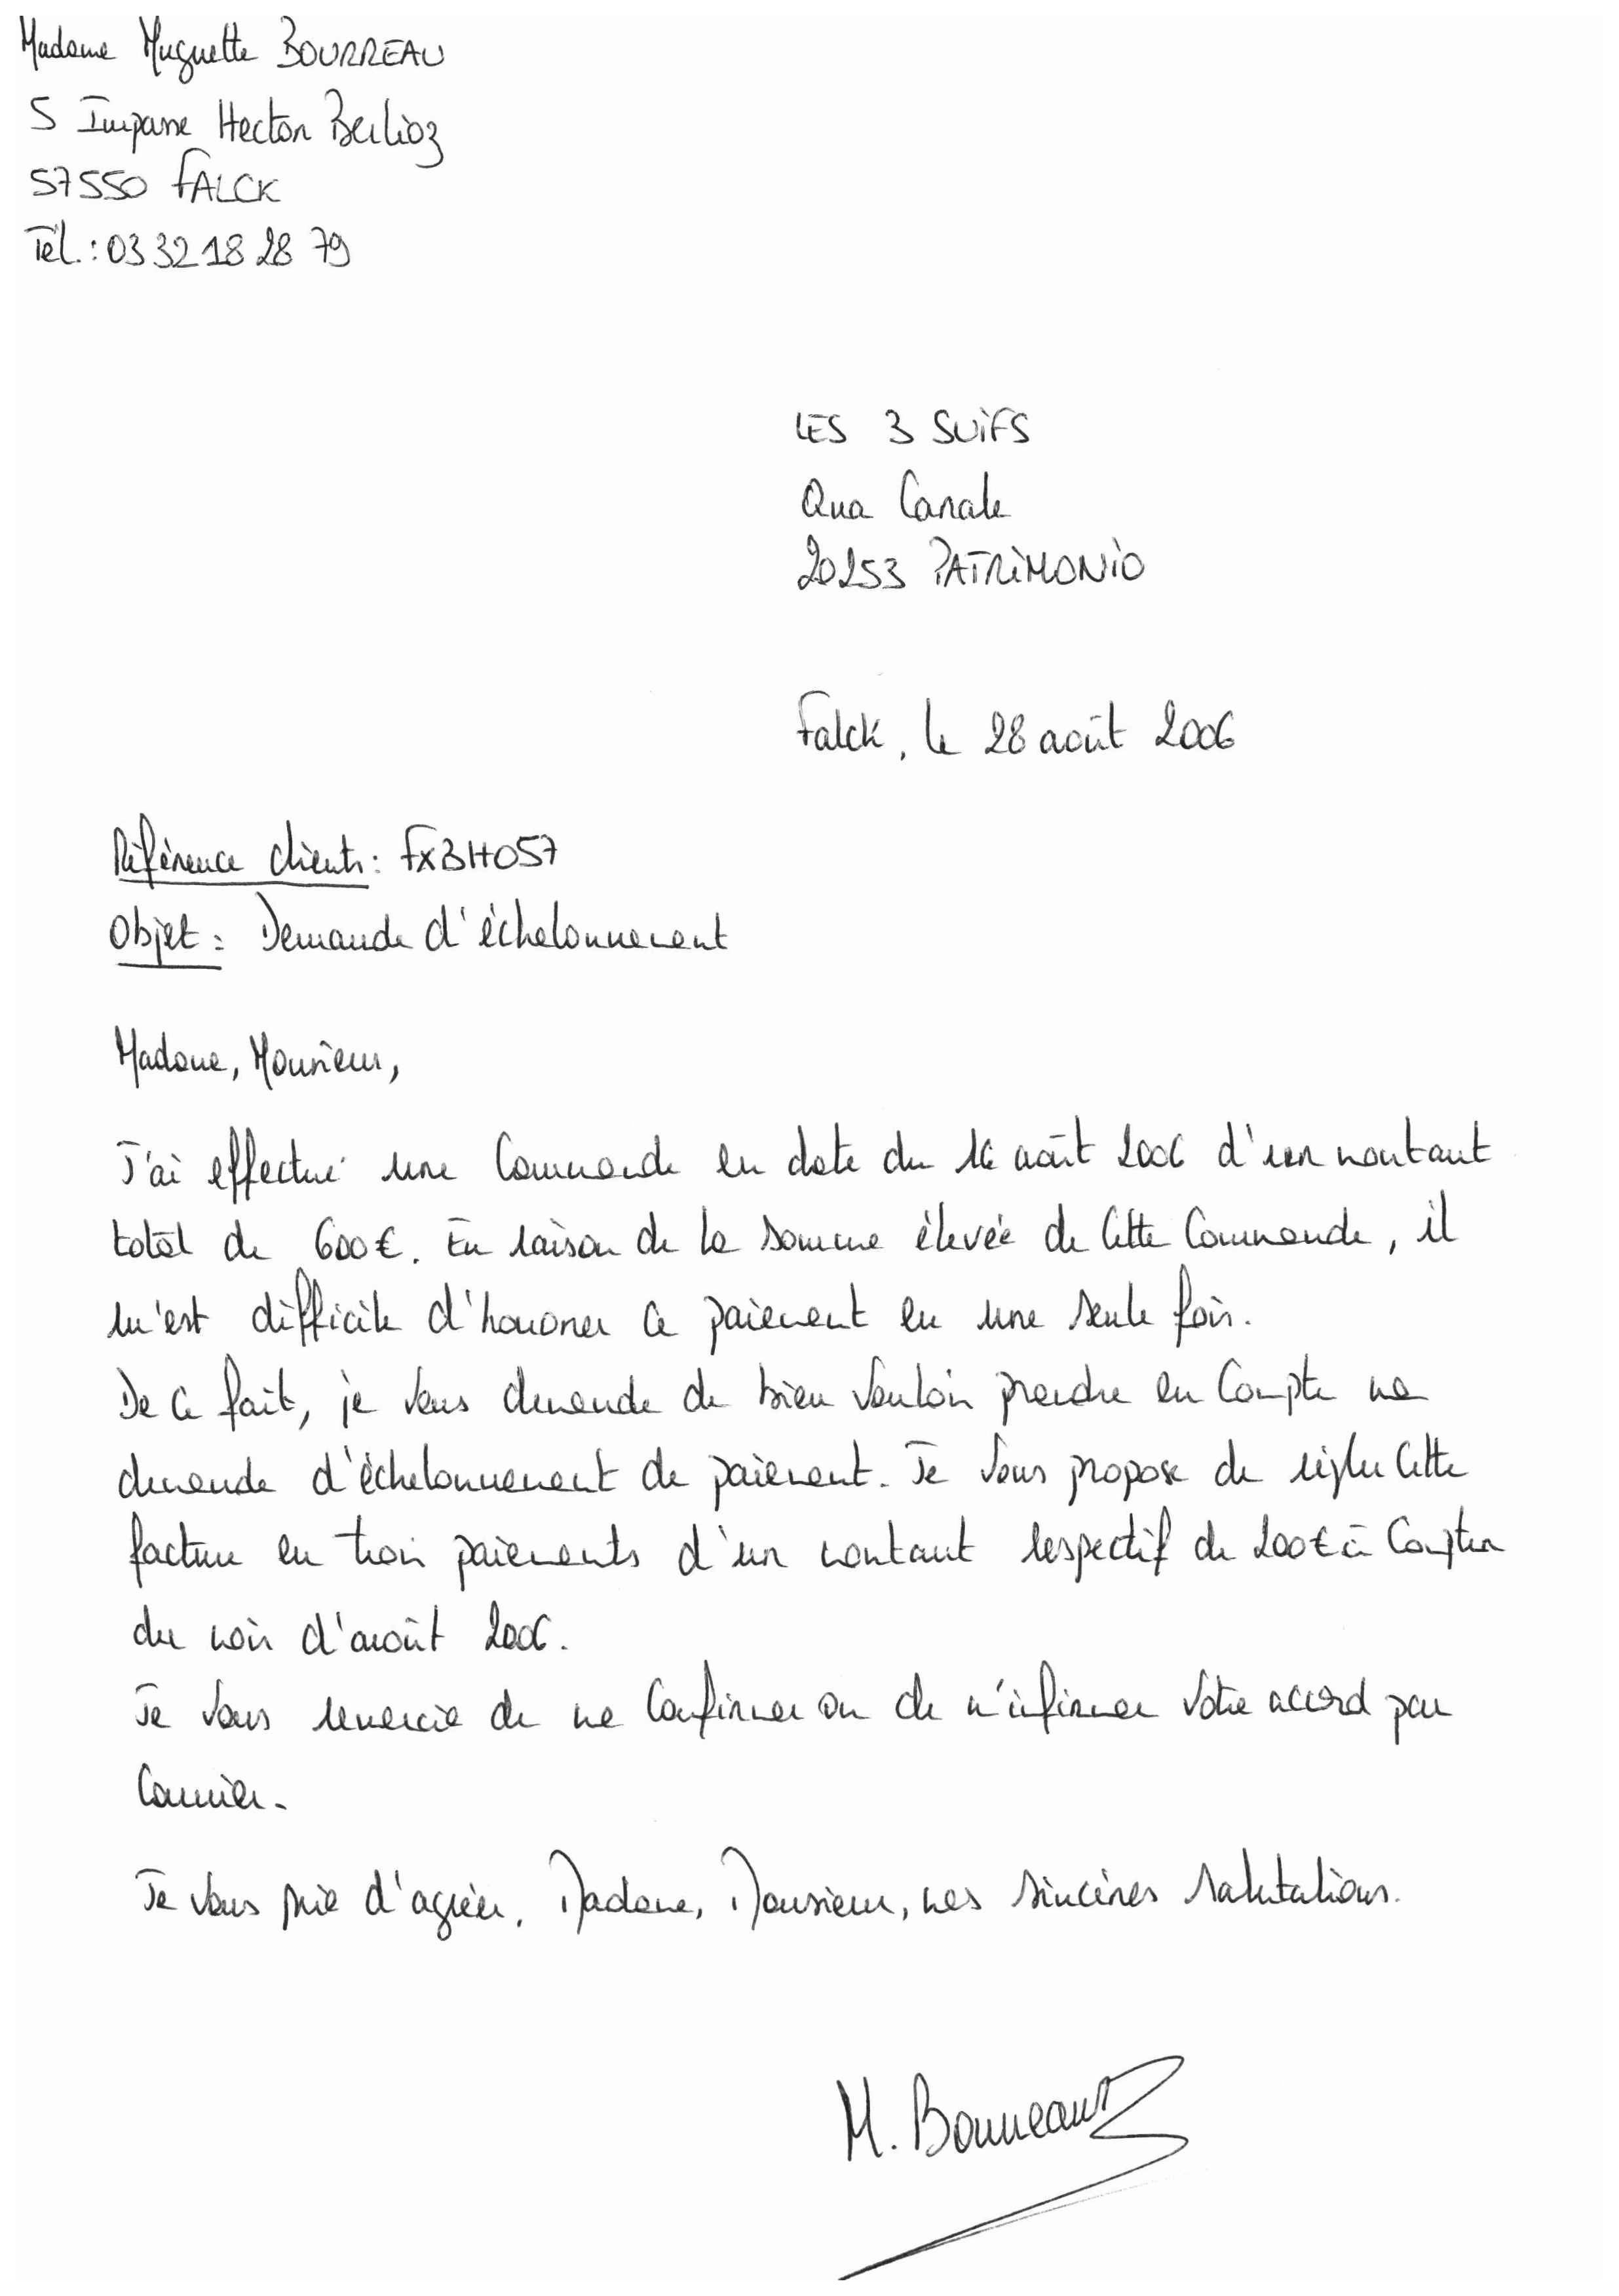 Madame Muguette BOURREAU
5 Impasse Hector Berlioz
57550 FALCK
Tél.: 03 32 18 28 79
LES 3 SUIFS
Qua Canale
20253 PATRIMONIO
Falck, le 28 août 2006
Référence clients: FXBH057
Objet: Demande d'échelonnement
Madame, Monsieur,
J'ai effectué une commande en date du 16 août 2006 d'un montant
total de 600€. En raison de la somme élevée de cette commande, il
m'est difficile d'honorer ce paiement en une seule fois.
De ce fait, je vous demande de bien vouloir prendre en compte ma
demande d'échelonnement de paiement. Je vous propose de régler cette
facture en trois paiements d'un montant respectif de 200€ à compter
du mois d'août 2006.
Je vous remercie de me confirmer ou de m'infirmer votre accord par
courrier.
Je vous prie d'agréer, Madame, Monsieur, mes sincères salutations.
M. Bourreau